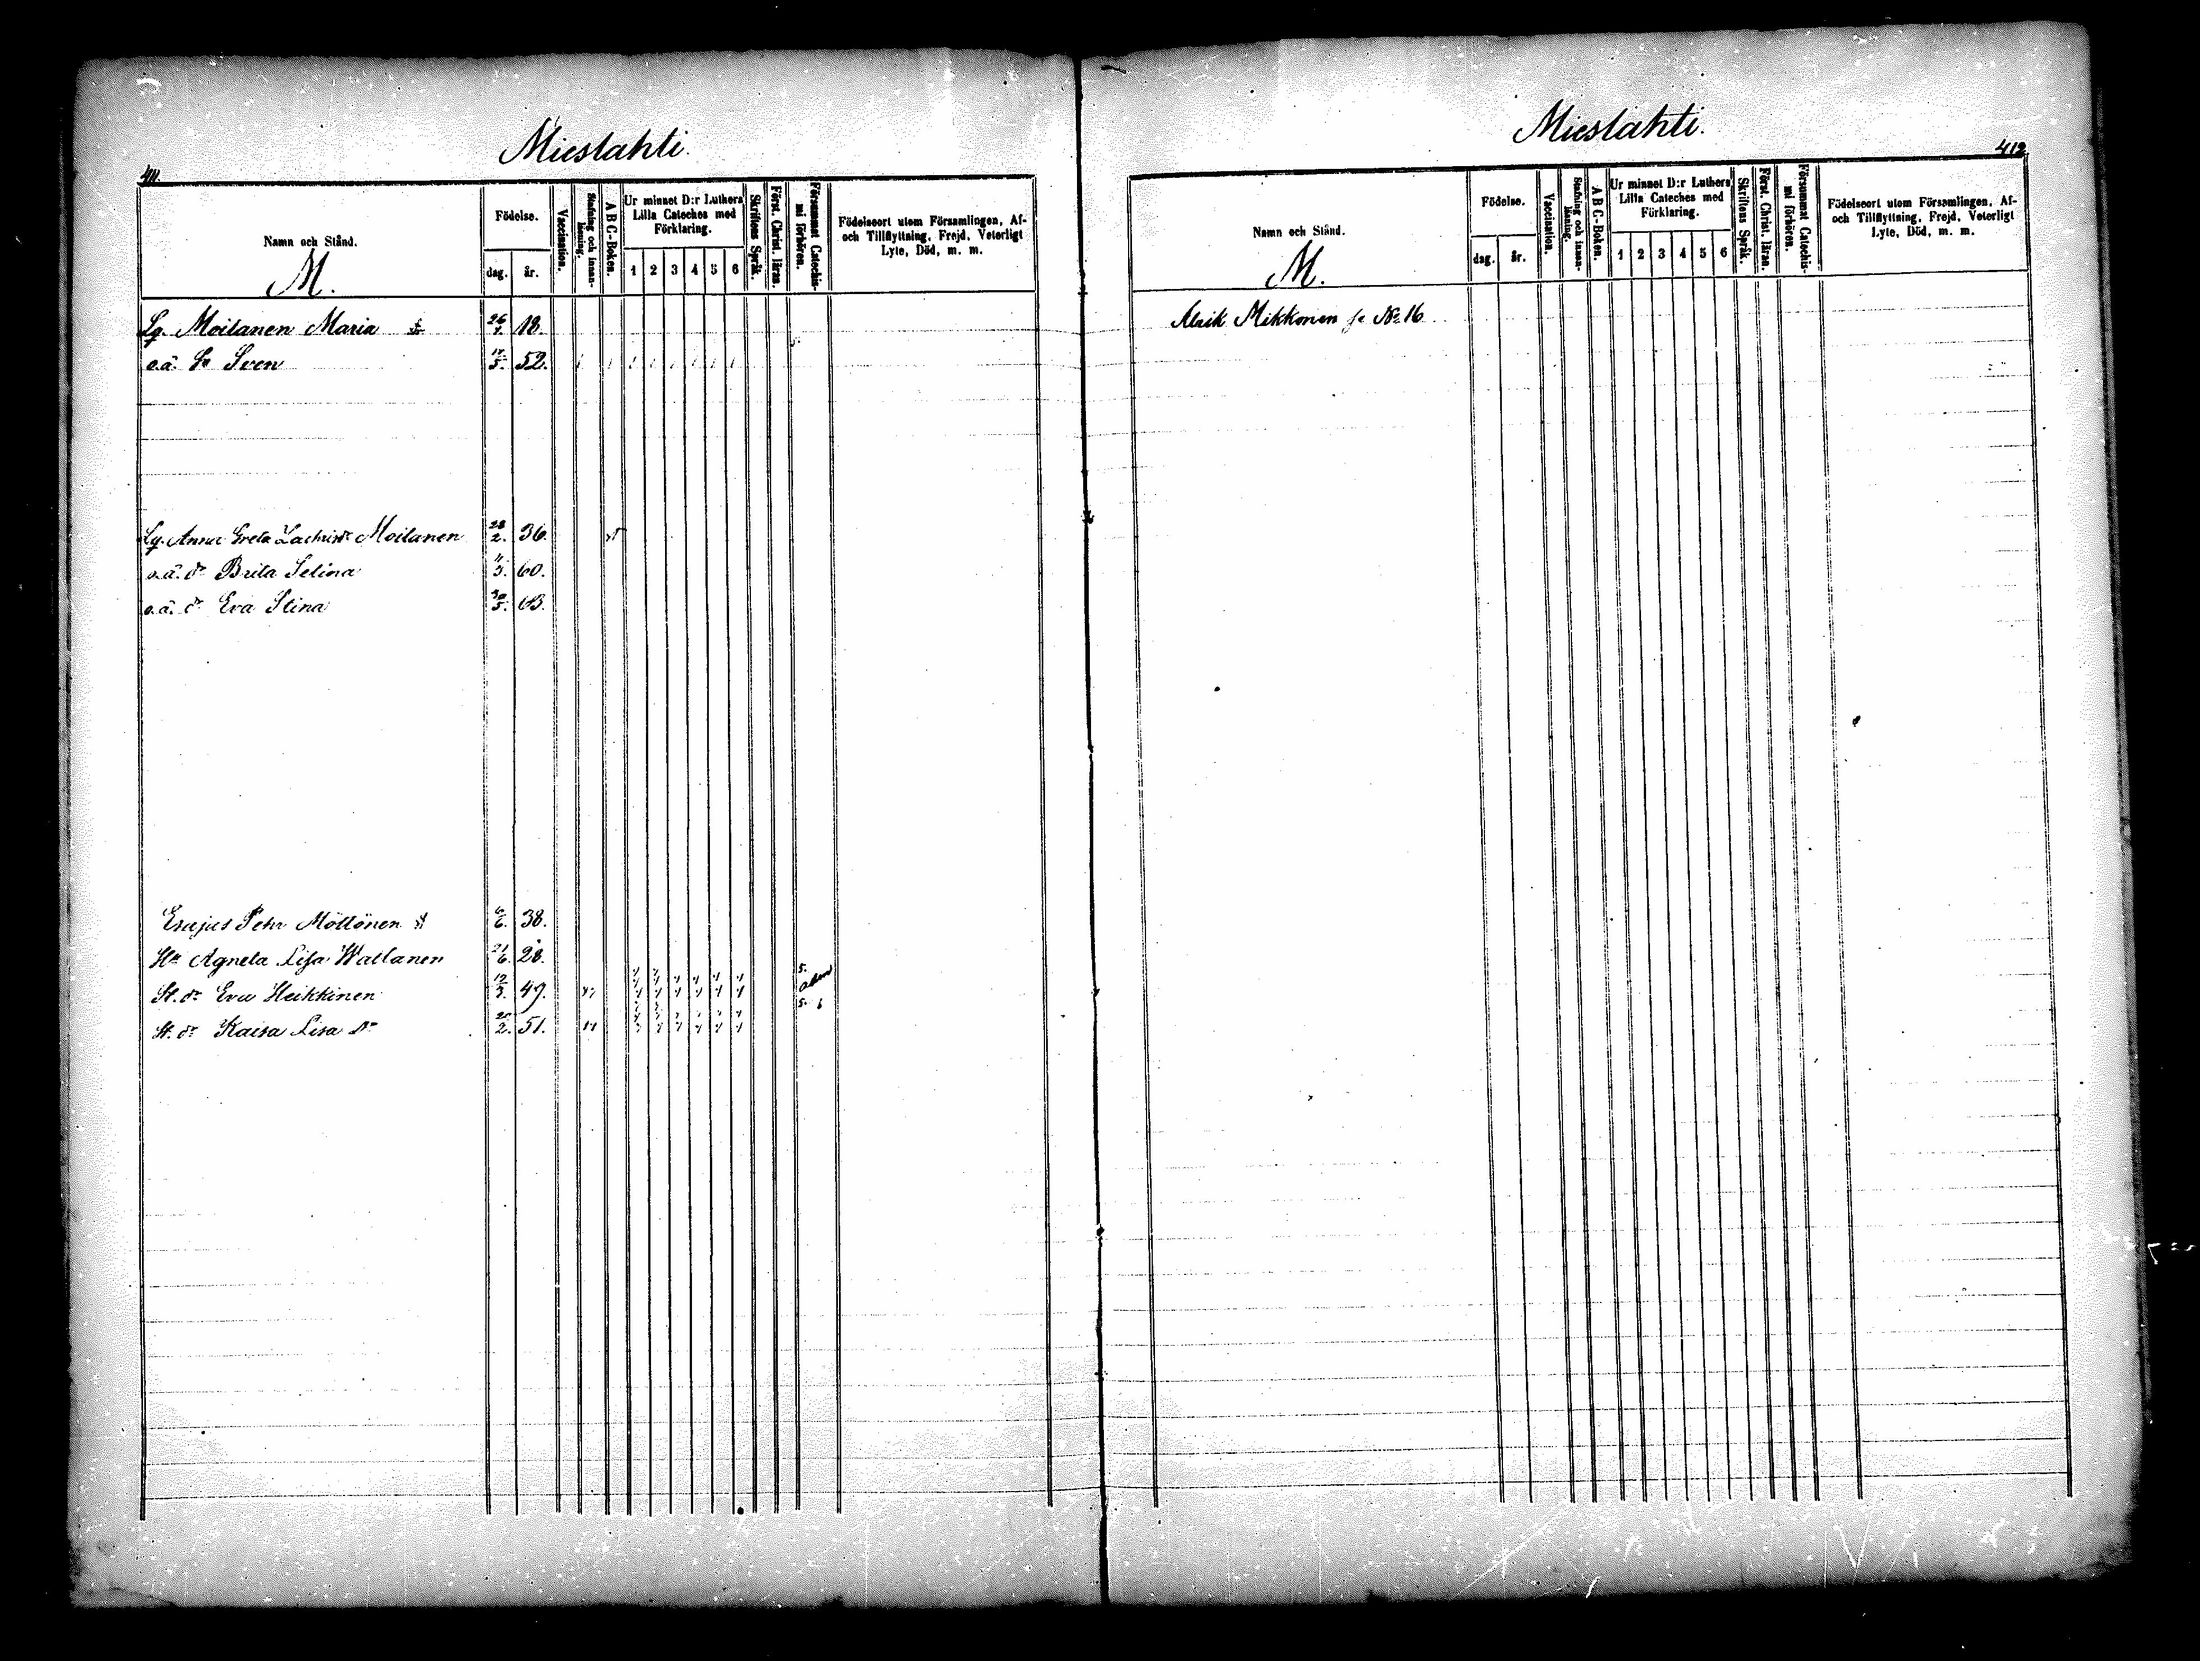 Mieslahti.
411.
Namn och Stånd.
M.
Födelse.
dag. år.
Vaccination.
Stafning och innan-läsning.
A B C-Boken.
Ur minnet D:r Luthers
Lilla Cateches med
Förklaring.
1 2 3 4 5 6
Skriftens Språk.
Först. Christ. läran.
Försummat Catechis-
mi förhören.
Födelseort utom Församlingen, Af-
och Tillflyttning, Frejd, Veterligt
Lyte, Död, m. m.
Lg. Moilanen Maria 26 18.
o.ä. Sn Sven 5. 52.
Lg. Anna Greta Moilanen 28/2. 36.
o.ä. dr Brita Selina 4/3. 60.
o.ä. dr Eva Stina 30/5. 63.
Esajas Pehr Möttönen 6/6. 38.
Agneta Lisa Watlanen 21/6. 28.
St. dr Eva Heikkinen 12/3. 49.
St. dr Kaisa Lisa Dr 2. 51.
Mieslahti.
412
Namn och Stånd.
M.
Födelse.
dag. år.
Vaccination.
Stafning och innan-läsning.
A B C-Boken.
Ur minnet D:r Luthers
Lilla Cateches med
Förklaring.
1 2 3 4 5 6
Skriftens Språk.
Först. Christ. läran.
Försummat Catechis-
mi förhören.
Födelseort utom Församlingen, Af-
och Tillflyttning, Frejd, Veterligt
Lyte, Död, m. m.
Alrik Mikkonen se No 16